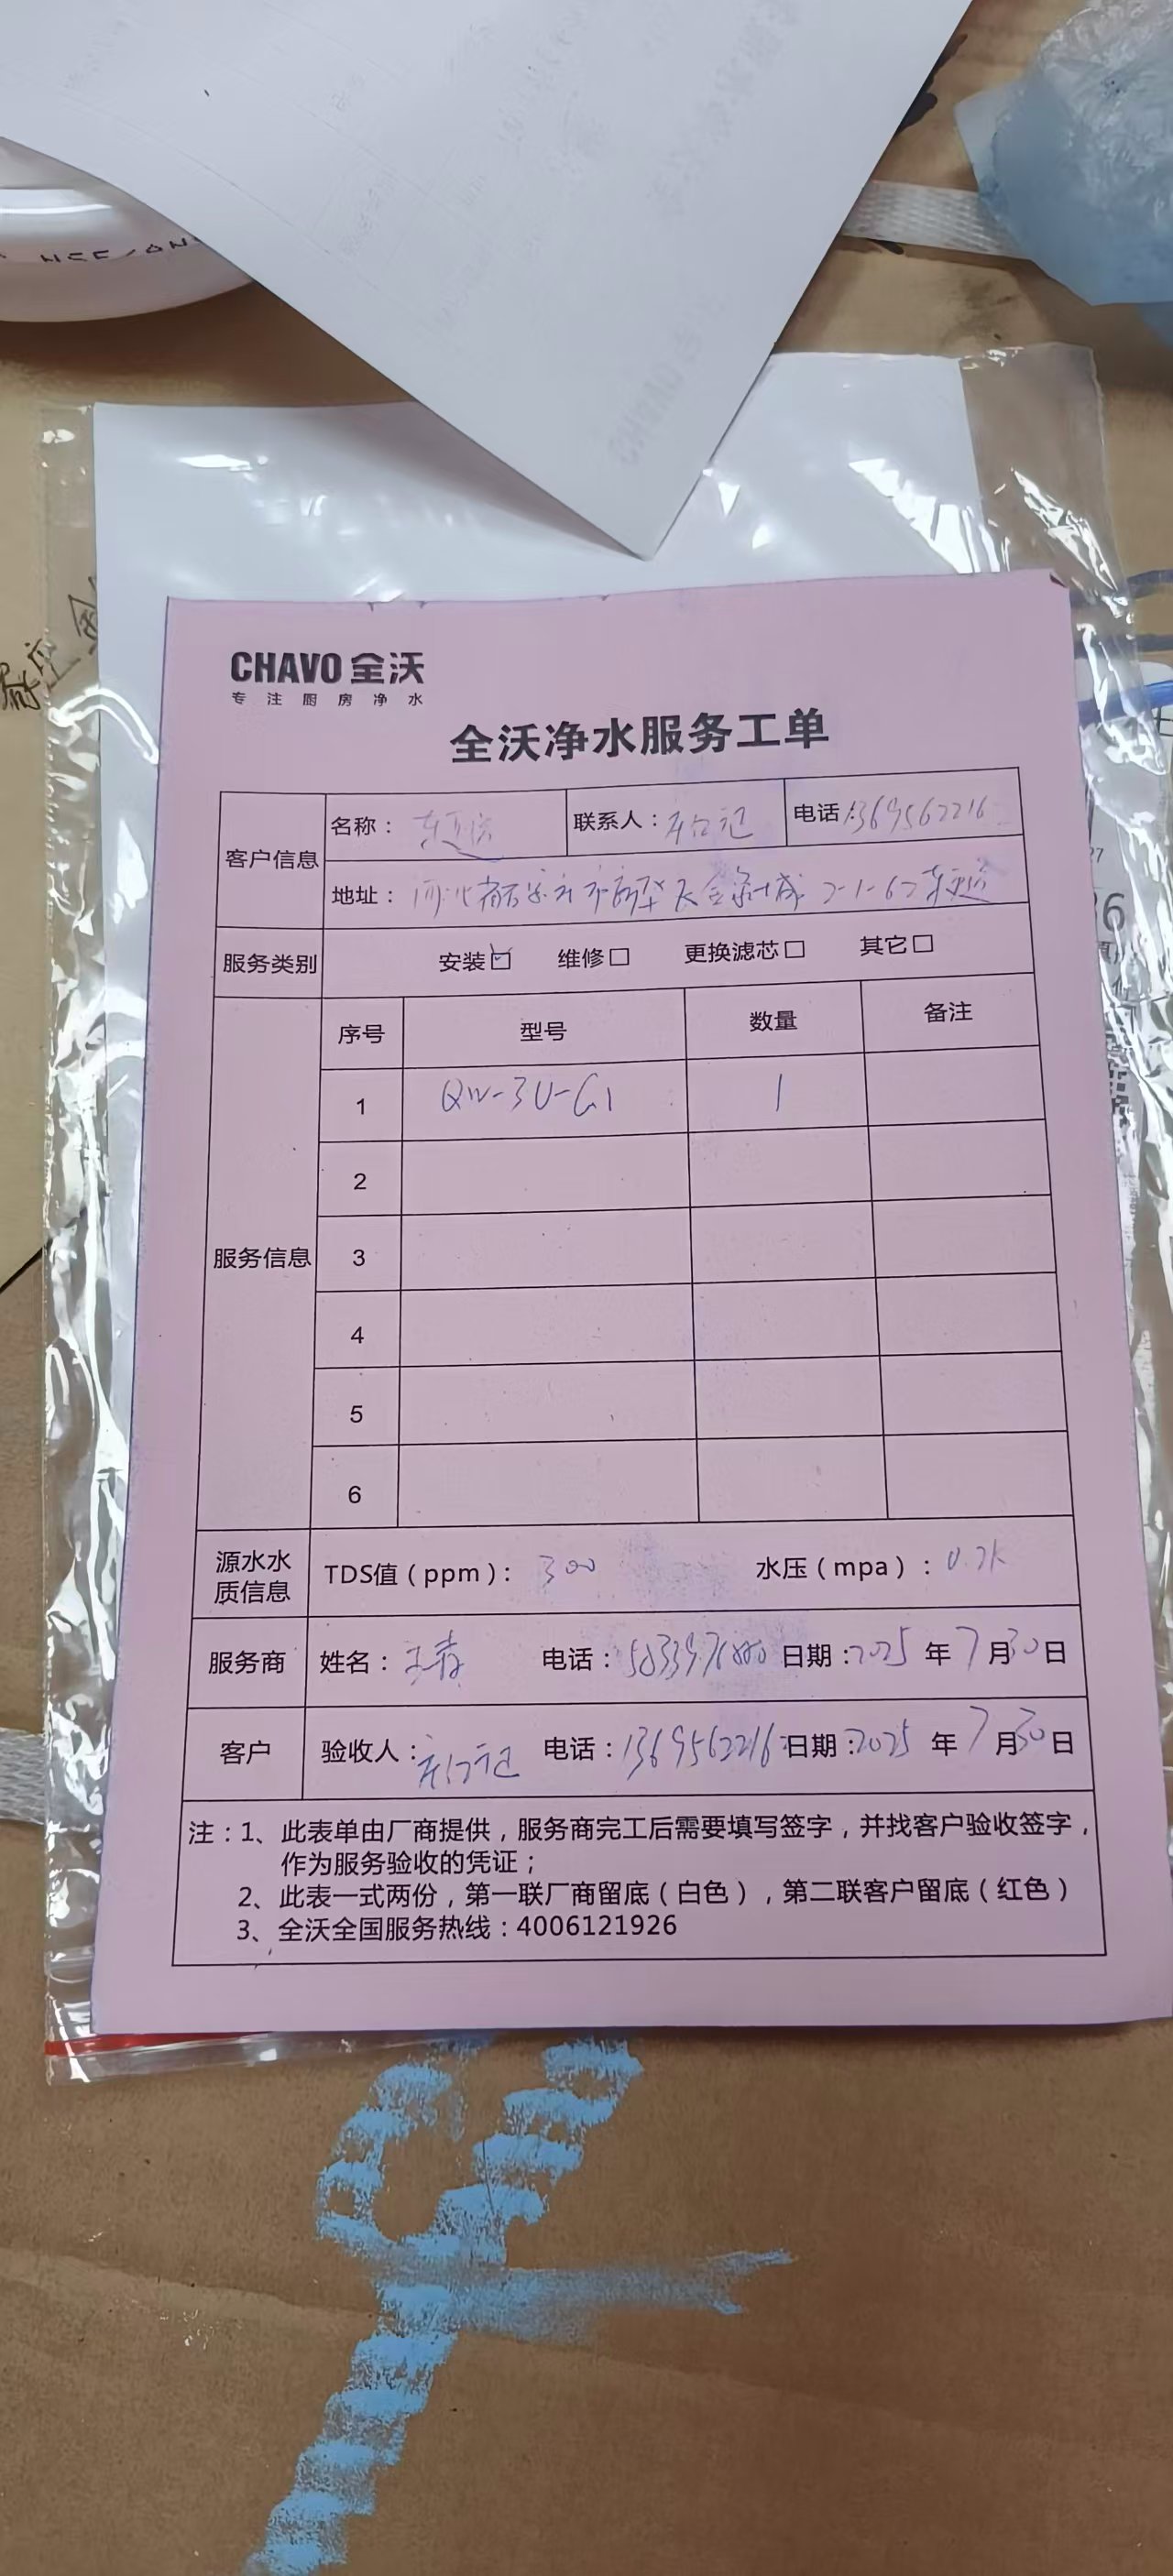 CHAVO 全沃
专注厨房净水
全沃净水服务工单
客户信息
名称：
联系人：
电话 1369562216
地址：河北省石家庄市
服务类别 安装☑ 维修□ 更换滤芯□ 其它□
服务信息
序号 型号 数量 备注
1 QW-3U-G1 1
2
3
4
5
6
源水水质信息 TDS值（ppm）：300 水压（mpa）：
服务商 姓名： 电话： 日期：2025年7月30日
客户 验收人： 电话：1369562216 日期：2025年7月30日
注：1、此表单由厂商提供，服务商完工后需要填写签字，并找客户验收签字，
作为服务验收的凭证；
2、此表一式两份，第一联厂商留底（白色），第二联客户留底（红色）
3、全沃全国服务热线：4006121926